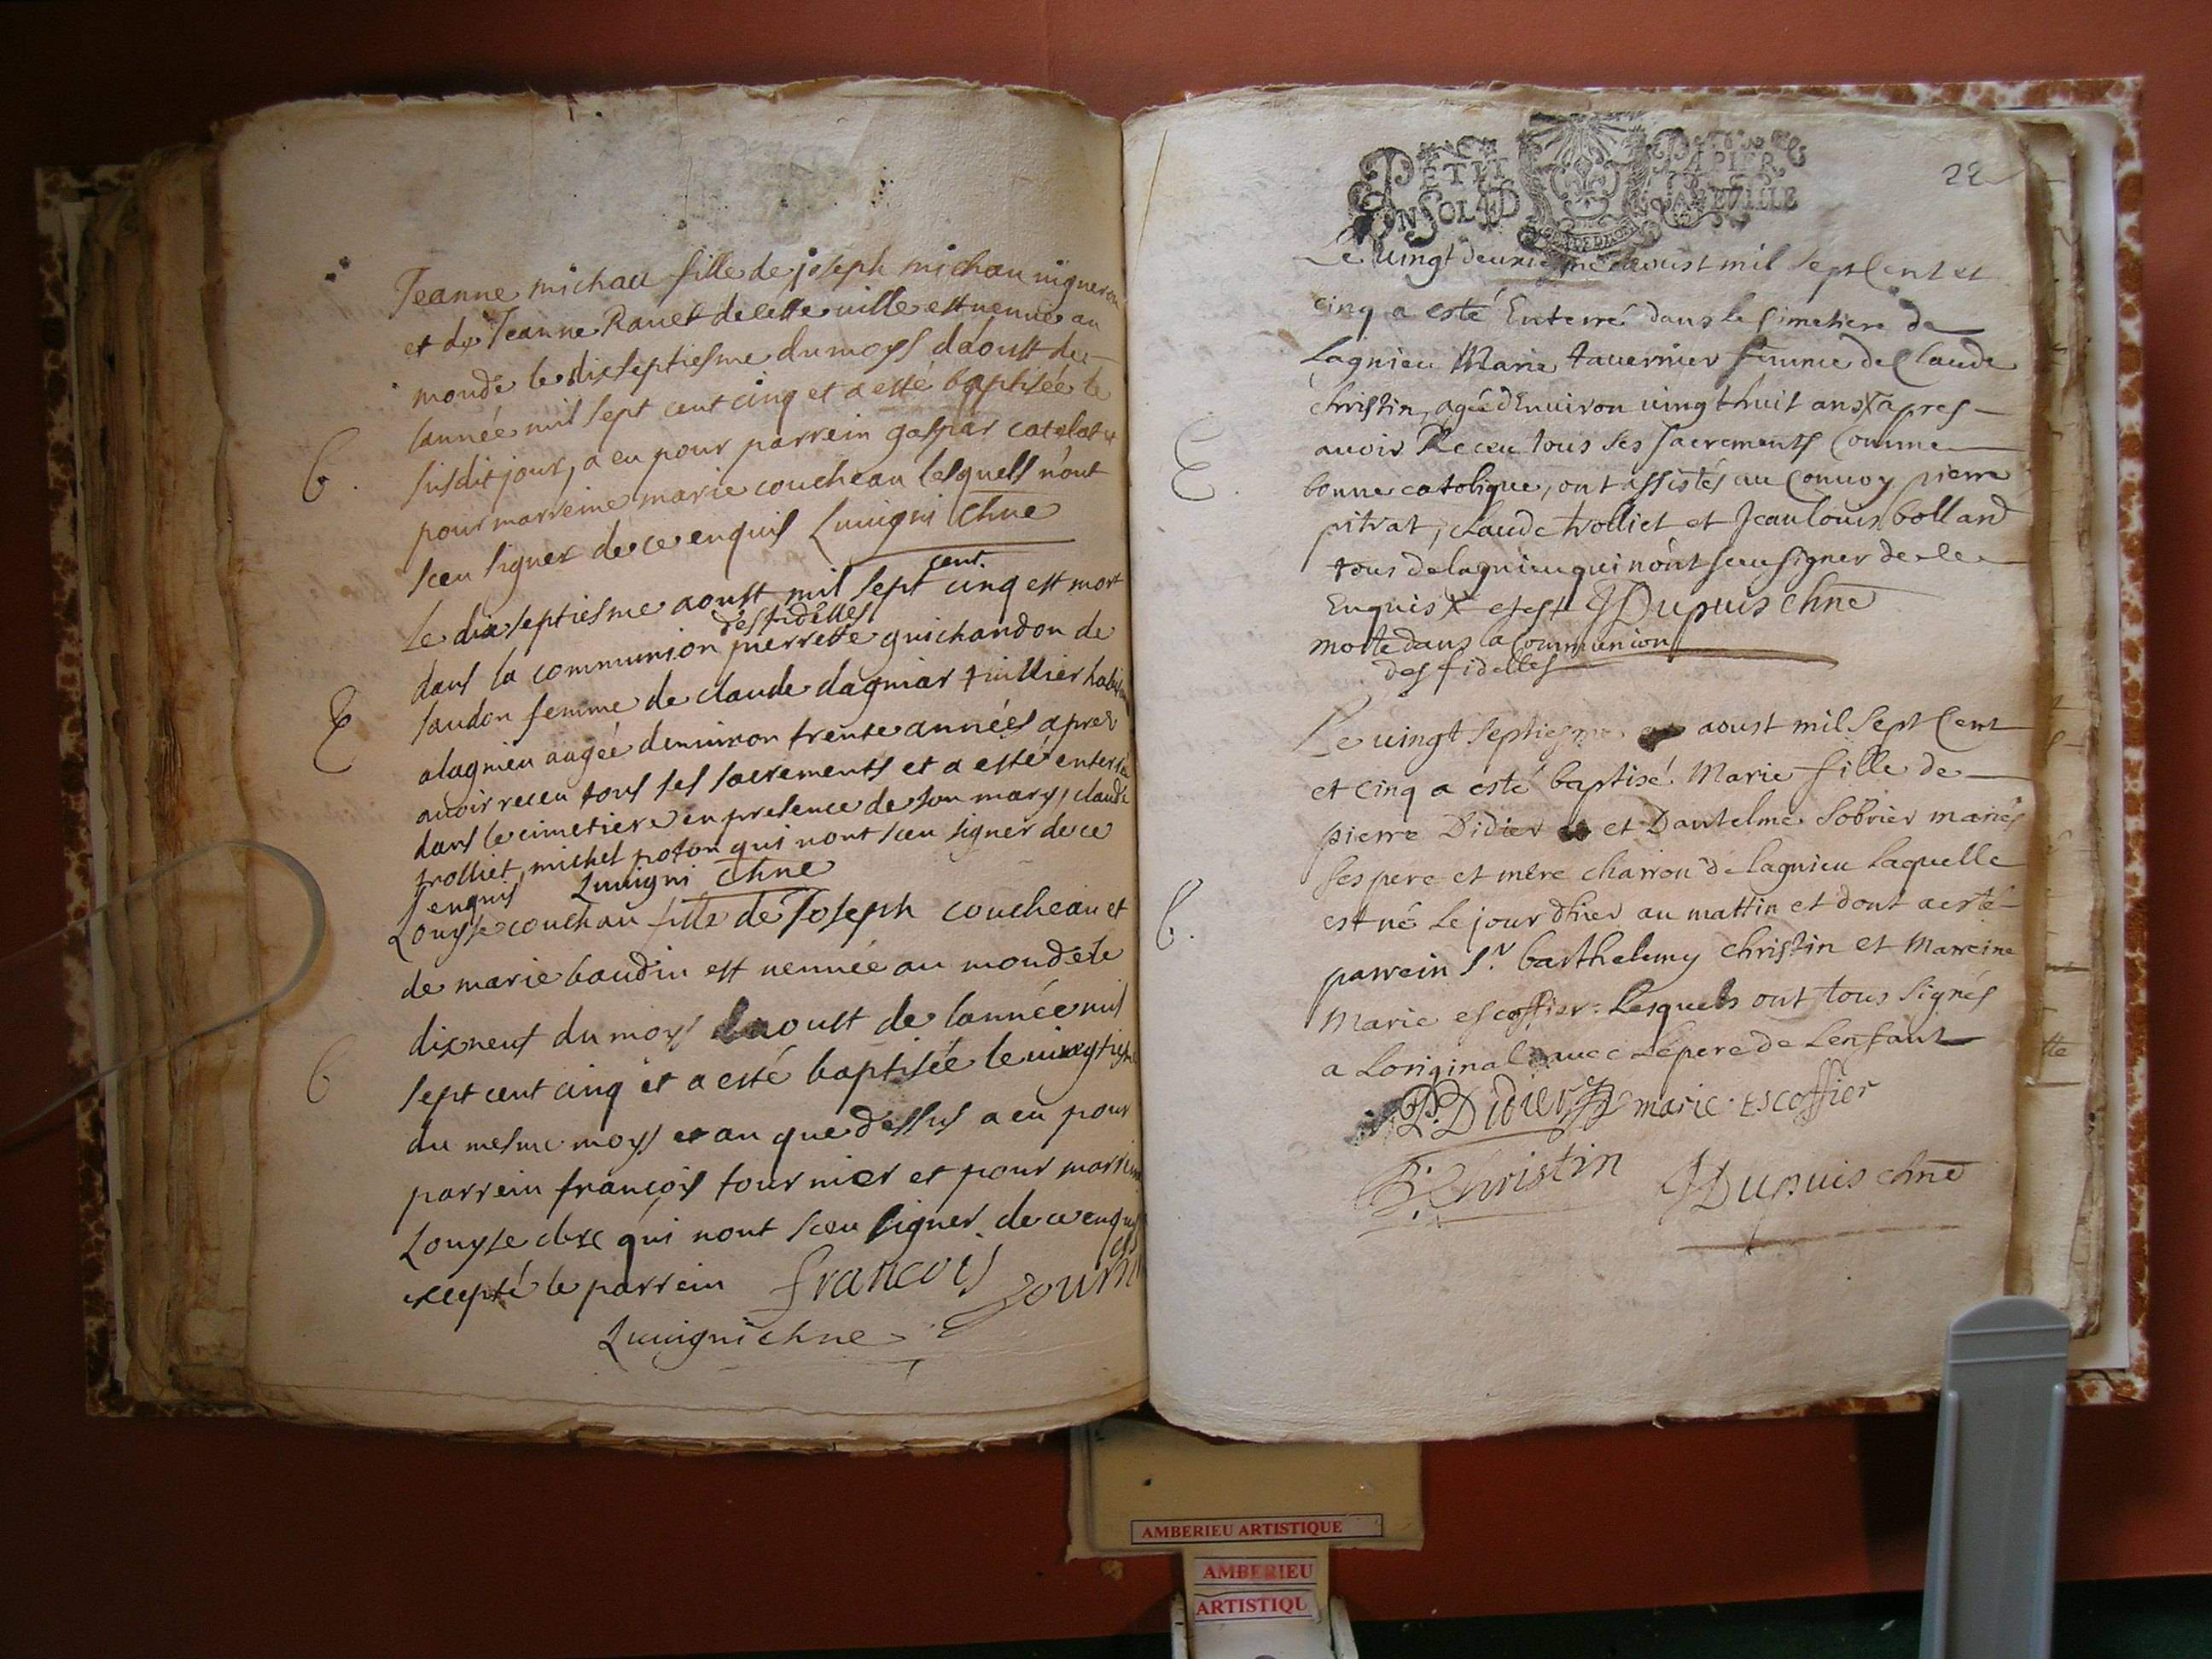 Jeanne michau fille de joseph michau uigneron
et de Jeanne Rauet de cette uille est uenue au
monde le dixseptiesme du moys daoust de
lannée mil sept cent cinq et a esté baptisée le
B.
susdit jour, a eu pour parrein gaspar catelat et
pour marreine marie coucheau lesquels n'ont
sceu signer de ce enquis Luuigni Chne
cent
le dixseptiesme aoust mil sept cinq est mort
des fidelles
dans la communion pierrette guichandon de
E
laudon femme de claude dagniar tuillier
a lagnieu aagée denuiron trente années apres
auoir receu tous ses sacrements et a esté enterrée
dans le cimetiere en presence de son mary, claude
trolliet, michel poton qui nont sceu signer de ce
enquis Luuigni Chne
Louyse couchau fille de Joseph coucheau et
de marie baudin est uennée au monde le
dixneuf du moys daoust de lannée mil
B
sept cent cinq et a esté baptisée le uingtiesme
du mesme moys et an que dessus a eu pour
parrein françois tournier et pour marreine
Louyse qui nont sceu signer de ce enquis
excepté le parrein francois tourn
Luuigni chne
PETIT PAPIER
22
Le uingt deuxiesme aoust mil sept Cent et
cinq a esté Enterré dans le Simetiere de
Lagnieu Marie tauernier femme de Claude
christin, agée dEnuiron uingt huit ans X apres
E.
auoir Receu tous ses sacrements Comme
bonne catolique, ont assistés au Conuoy pierre
pitrat, claude trolliet et Jean louis bolland
tous de lagnieu qui nont sceu signer de ce
Enquis X et est JDupuis chne
morte dans la Communion
des fidelles
Le uingt septiesme aoust mil sept Cent
et cinq a esté baptisé Marie fille de
pierre Didier et Dantelme Sobrier mariés
ses pere et mere charron de lagnieu laquelle
B.
est né le jour dhier au mattin et dont a esté
parrein Sr. barthelemy christin et Marreine
Marie escoffier. Lesquels ont tous signés
a Loriginal auec le pere de Lenfant
P. Didier marie Escoffier
B. Christin JDupuis chne
AMBERIEU ARTISTIQUE
AMBERIEU
ARTISTIQU